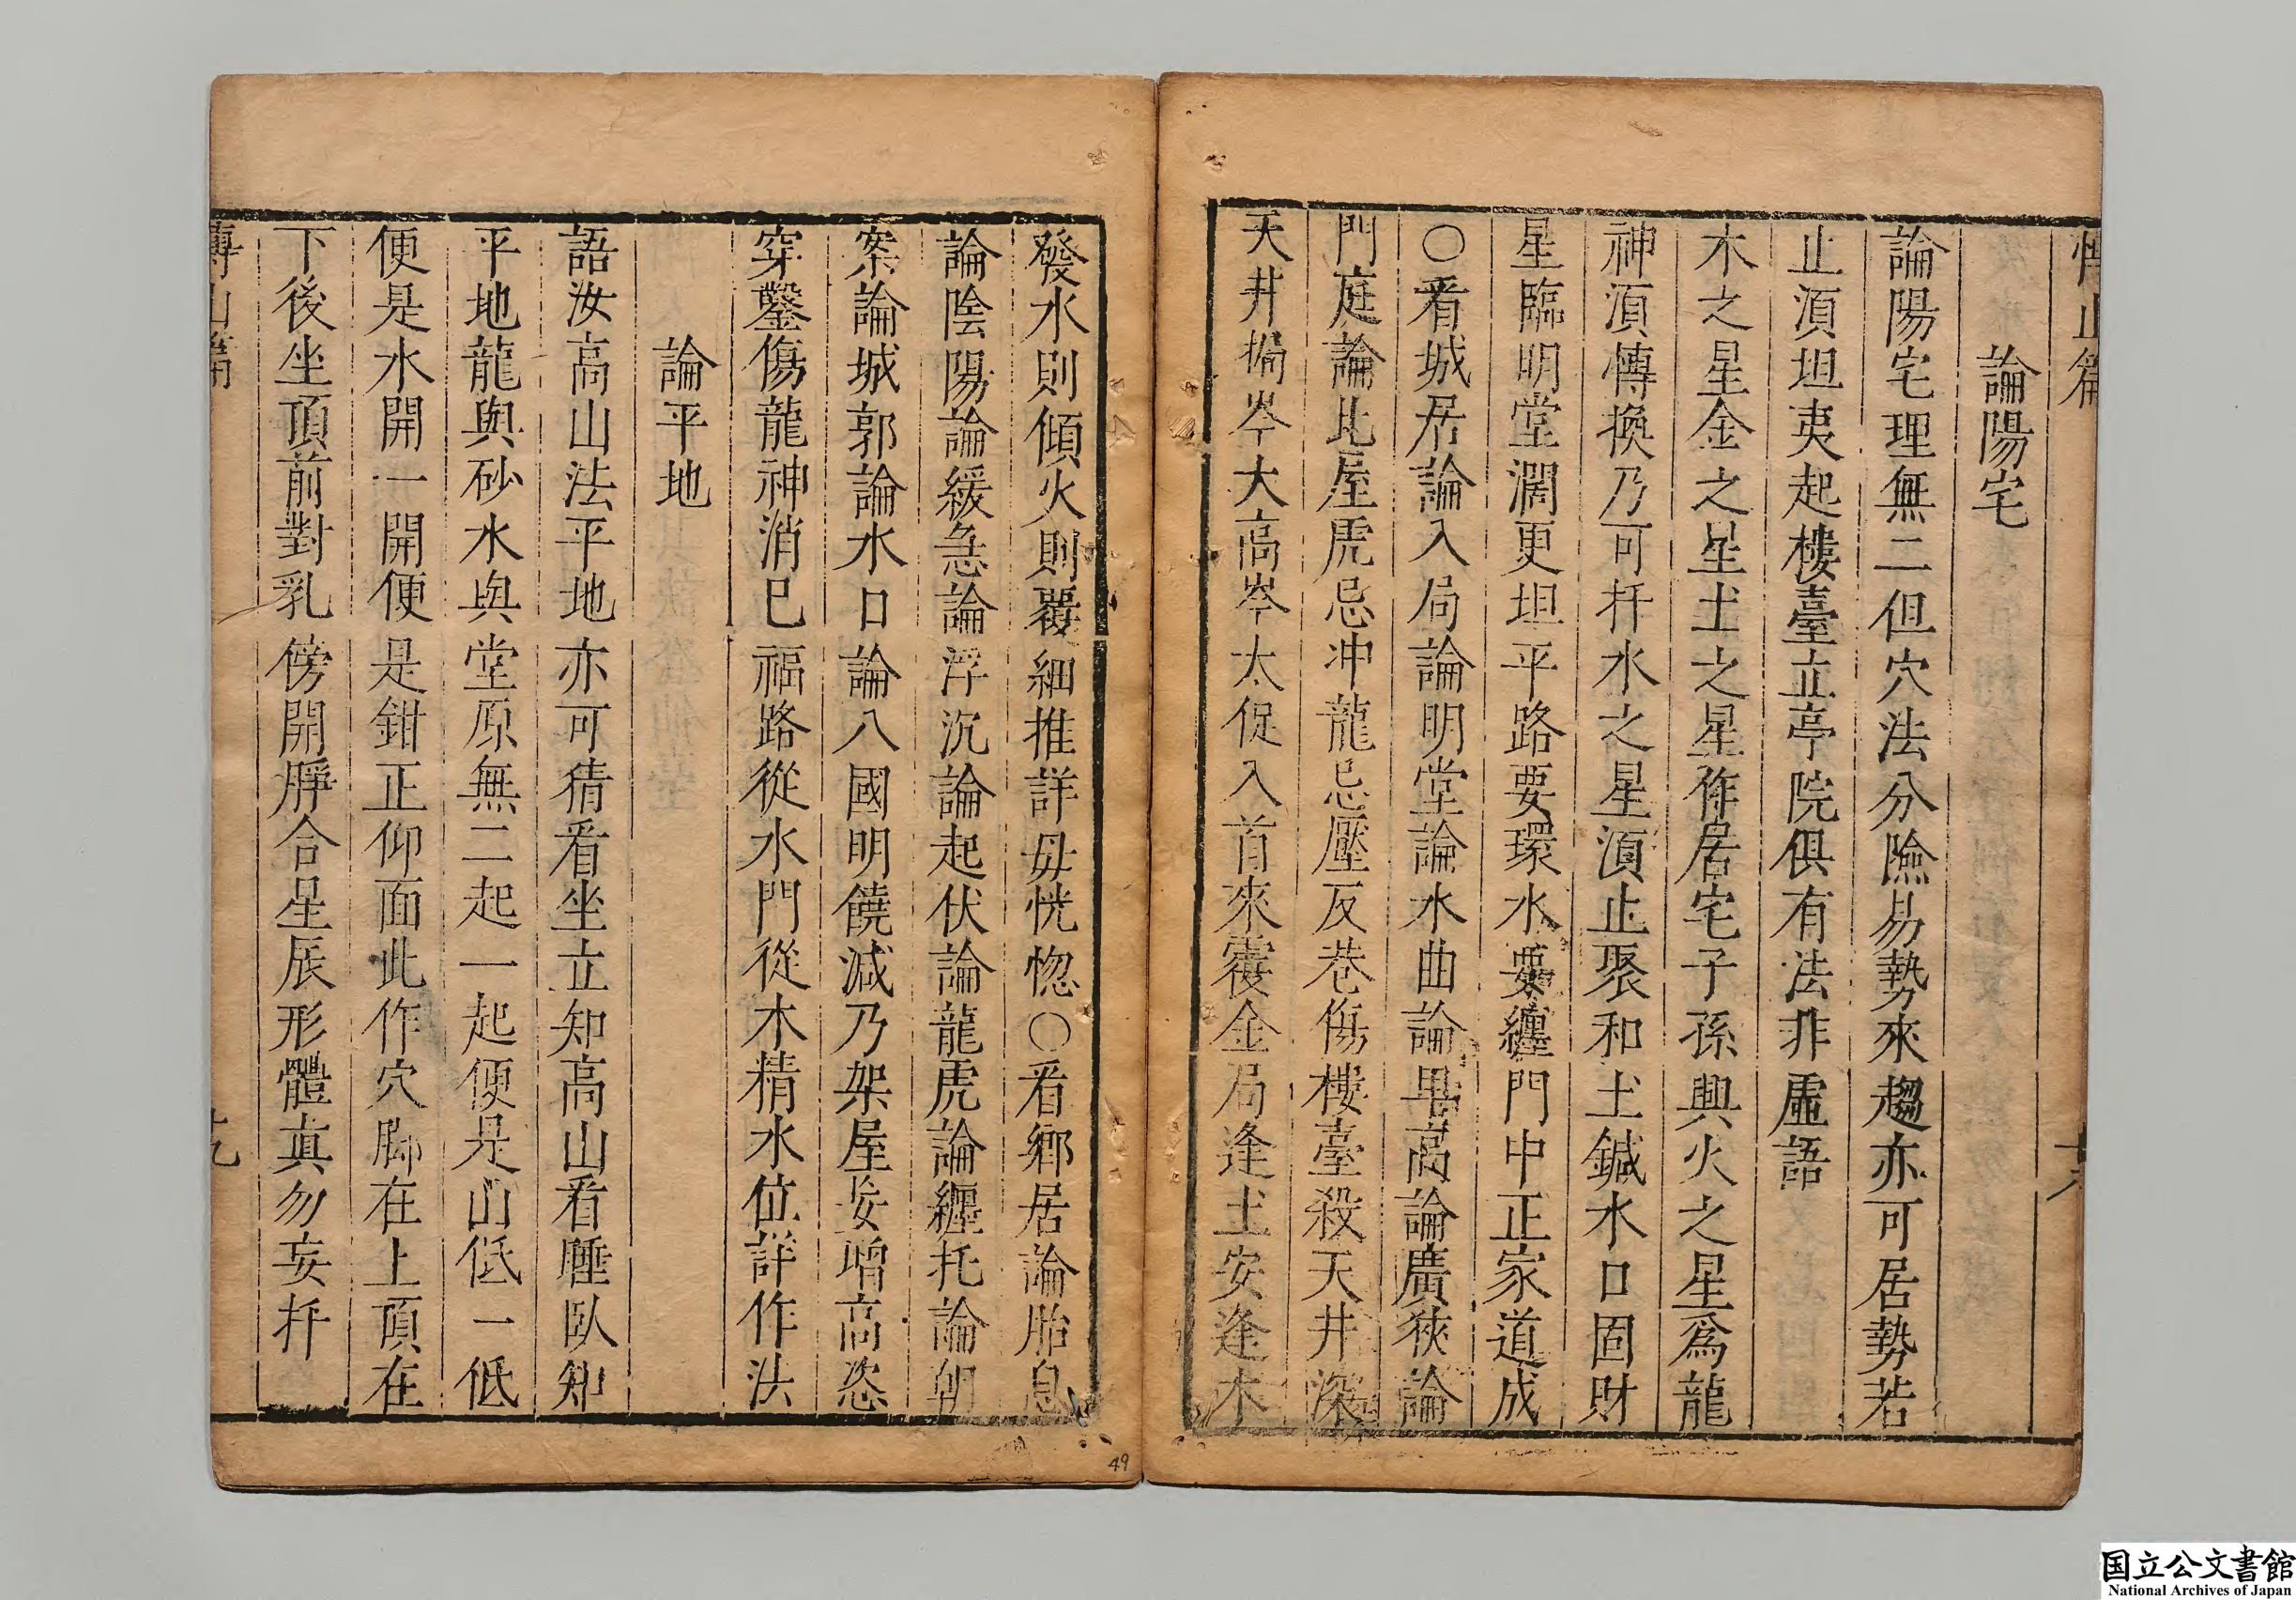 論陽宅
論陽宅理無二但穴法分險易勢來趨亦可居勢若
止湏坦夷起樓臺立亭院俱有法非虛語
木之星金之星土之星作居宅子孫興火之星爲龍
神湏慱換乃可扦水之星湏止聚和土鍼水口固財
星臨明堂濶更坦平路要環水要纏門中正家道成
○看城居論入局論明堂論水曲論卑高論廣狹論
門庭論比屋虎忌冲龍忌壓反巷傷樓臺殺天井深
天井搧岑大高岑太促入首來覆金局逢土安逢木
發水則傾火則覆細推詳毋恍惚○看鄉居論胎息
論陰陽論緩急論浮沉論起伏論龍虎論纏托論朝
案論城郭論水口論八國明饒減乃架屋妄增高恣
穿鑿傷龍神消巳福路從水門從木精水位詳作法
論平地
語汝高山法平地亦可猜看坐立知高山看睡臥知
平地龍與砂水與堂原無二起一起便是山低一低
便是水開一開便是鉗正仰面此作穴脚在上頂在
下後坐頂前對乳傍開胼合星辰形體真勿妄扦
国立公文書館
National Archives of Japan
49